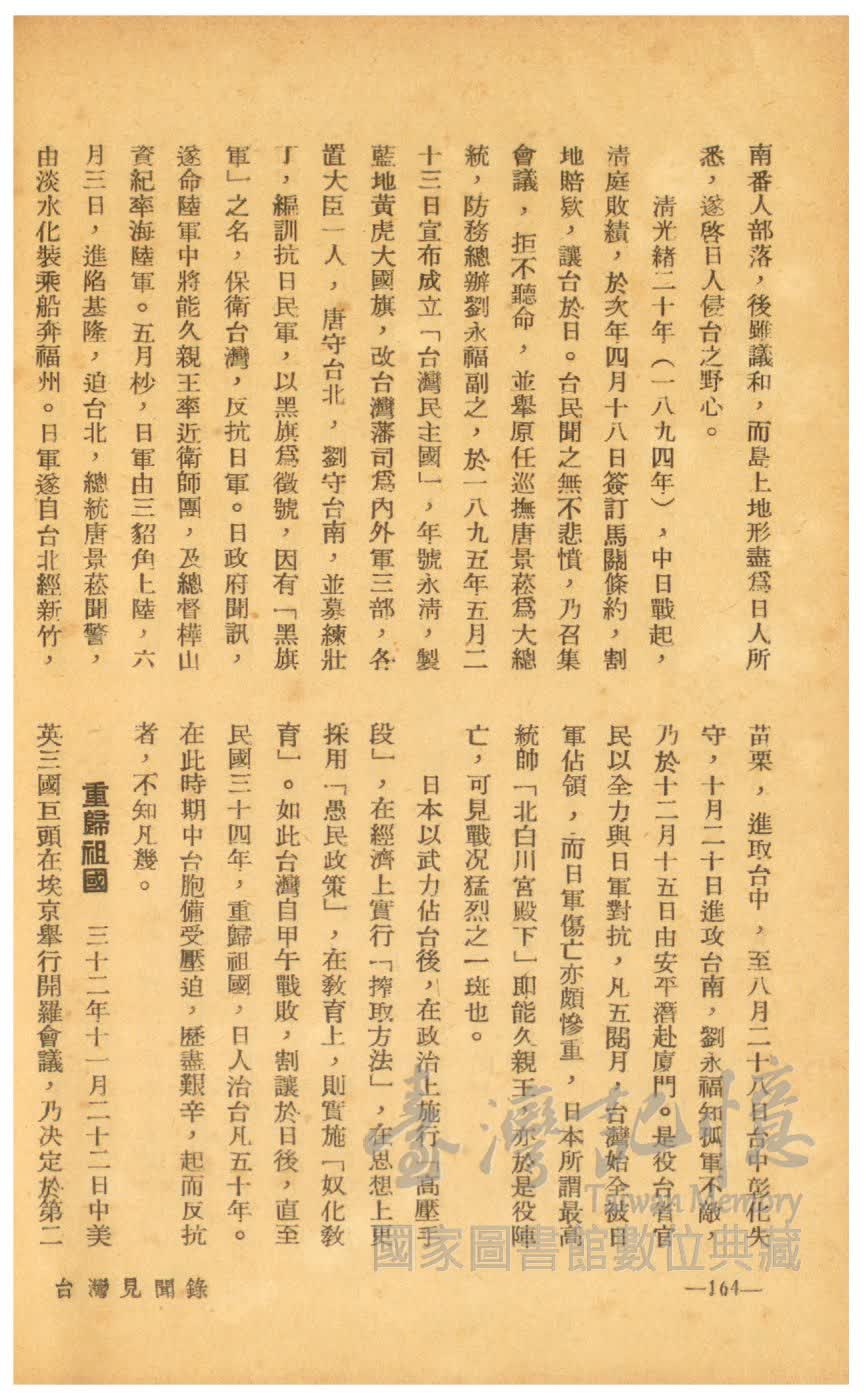 南番人部落，後雖議和，而島上地形盡爲日人所
悉，遂啓日人侵台之野心。
清光緒二十年（一八九四年），中日戰起，
清庭敗績，於次年四月十八日簽訂馬關條約，割
地賠欵，讓台於日。台民聞之無不悲憤，乃召集
會議，拒不聽命，並舉原任巡撫唐景菘爲大總
統，防務總辦劉永福副之，於一八九五年五月二
十三日宣布成立「台灣民主國」，年號永清，製
藍地黃虎大國旗，改台灣藩司爲內外軍三部，各
置大臣一人，唐守台北，劉守台南，並募練壯
丁，編訓抗日民軍，以黑旗爲徵號，因有「黑旗
軍」之名，保衛台灣，反抗日軍。日政府聞訊，
遂命陸軍中將能久親王率近衛師團，及總督樺山
資紀率海陸軍。五月杪，日軍由三貂角上陸，六
月三日，進陷基隆，迫台北，總統唐景菘聞警，
由淡水化裝乘船奔福州。日軍遂自台北經新竹，
苗栗，進取台中，至八月二十八日台中彰化失
守，十月二十日進攻台南，劉永福知孤軍不敵，
乃於十二月十五日由安平潛赴廈門。是役台省官
民以全力與日軍對抗，凡五閱月，台灣始全被日
軍佔領，而日軍傷亡亦頗慘重，日本所謂最高
統帥「北白川宮殿下」即能久親王，亦於是役陣
亡，可見戰况猛烈之一斑也。
日本以武力佔台後，在政治上施行「高壓手
段」，在經濟上實行「搾取方法」，在思想上更
採用「愚民政策」，在敎育上，則實施「奴化敎
育」。如此台灣自甲午戰敗，割讓於日後，直至
民國三十四年，重歸祖國，日人治台凡五十年。
在此時期中台胞備受壓迫，歷盡艱辛，起而反抗
者，不知凡幾。
重歸祖國　三十二年十一月二十二日中美
英三國巨頭在埃京舉行開羅會議，乃決定於第二
台灣見聞錄
—164—
臺灣記憶
Taiwan Memory
國家圖書館數位典藏